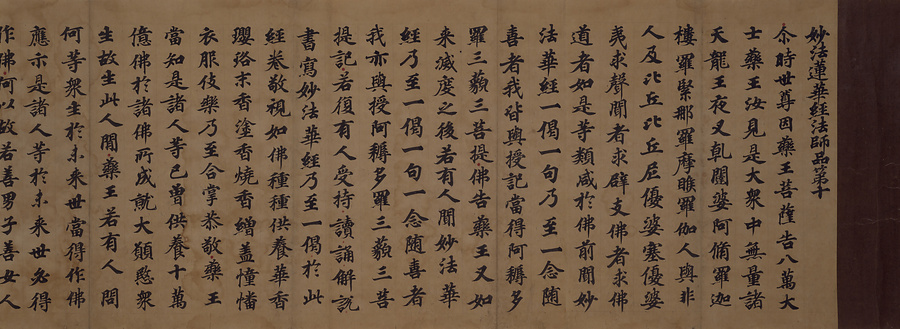 妙法蓮華經法師品第十
尒時世尊因藥王菩薩告八萬大
士藥王汝見是大衆中無量諸
天龍王夜叉乹闥婆阿脩羅迦
樓羅緊那羅摩睺羅伽人與非
人及比丘比丘尼優婆塞優婆
夷求聲聞者求辟支佛者求佛
道者如是等類咸於佛前聞妙
法華經一偈一句乃至一念隨
喜者我皆與授記當得阿耨多
羅三藐三菩提佛告藥王又如
来滅度之後若有人聞妙法華
經乃至一偈一句一念隨喜者
我亦與授阿耨多羅三藐三菩
提記若復有人受持讀誦解說
書寫妙法華經乃至一偈於此
經卷敬視如佛種種供養華香
瓔珞末香塗香燒香繒盖幢幡
衣服伎樂乃至合掌恭敬藥王
當知是諸人等已曾供養十萬
億佛於諸佛所成就大願愍衆
生故生此人閒藥王若有人問
何等衆生於未来世當得作佛
應示是諸人等於未来世必得
作佛何以故若善男子善女人